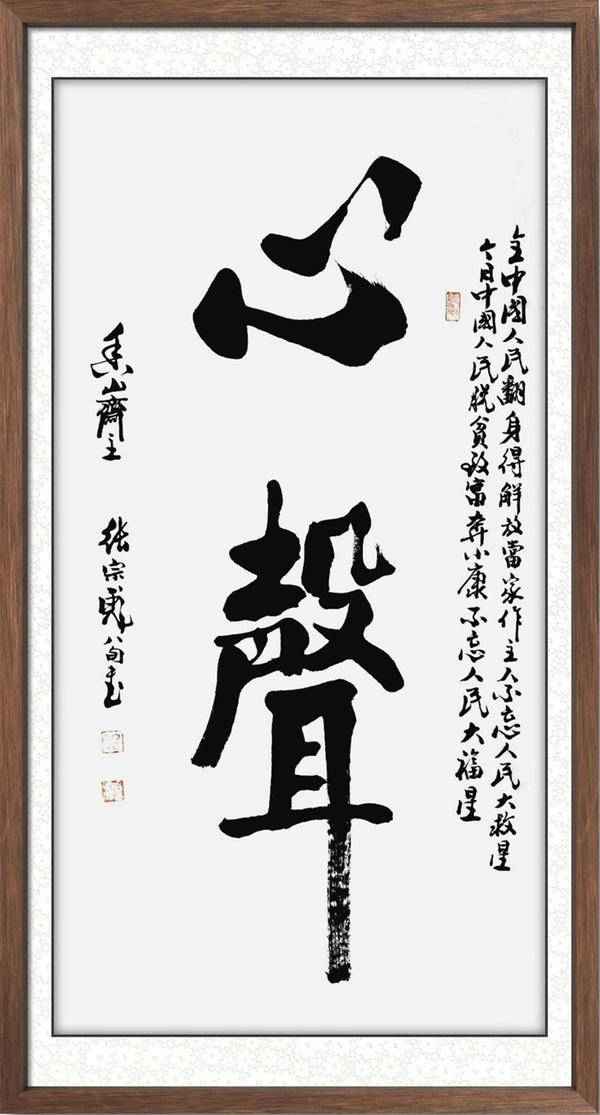 心聲
全中國人民翻身得解放當家作主人不忘人民大救星
今日中國人民脫貧致富奔小康不忘人民大福星
香山齋主 張宗彪八旬書